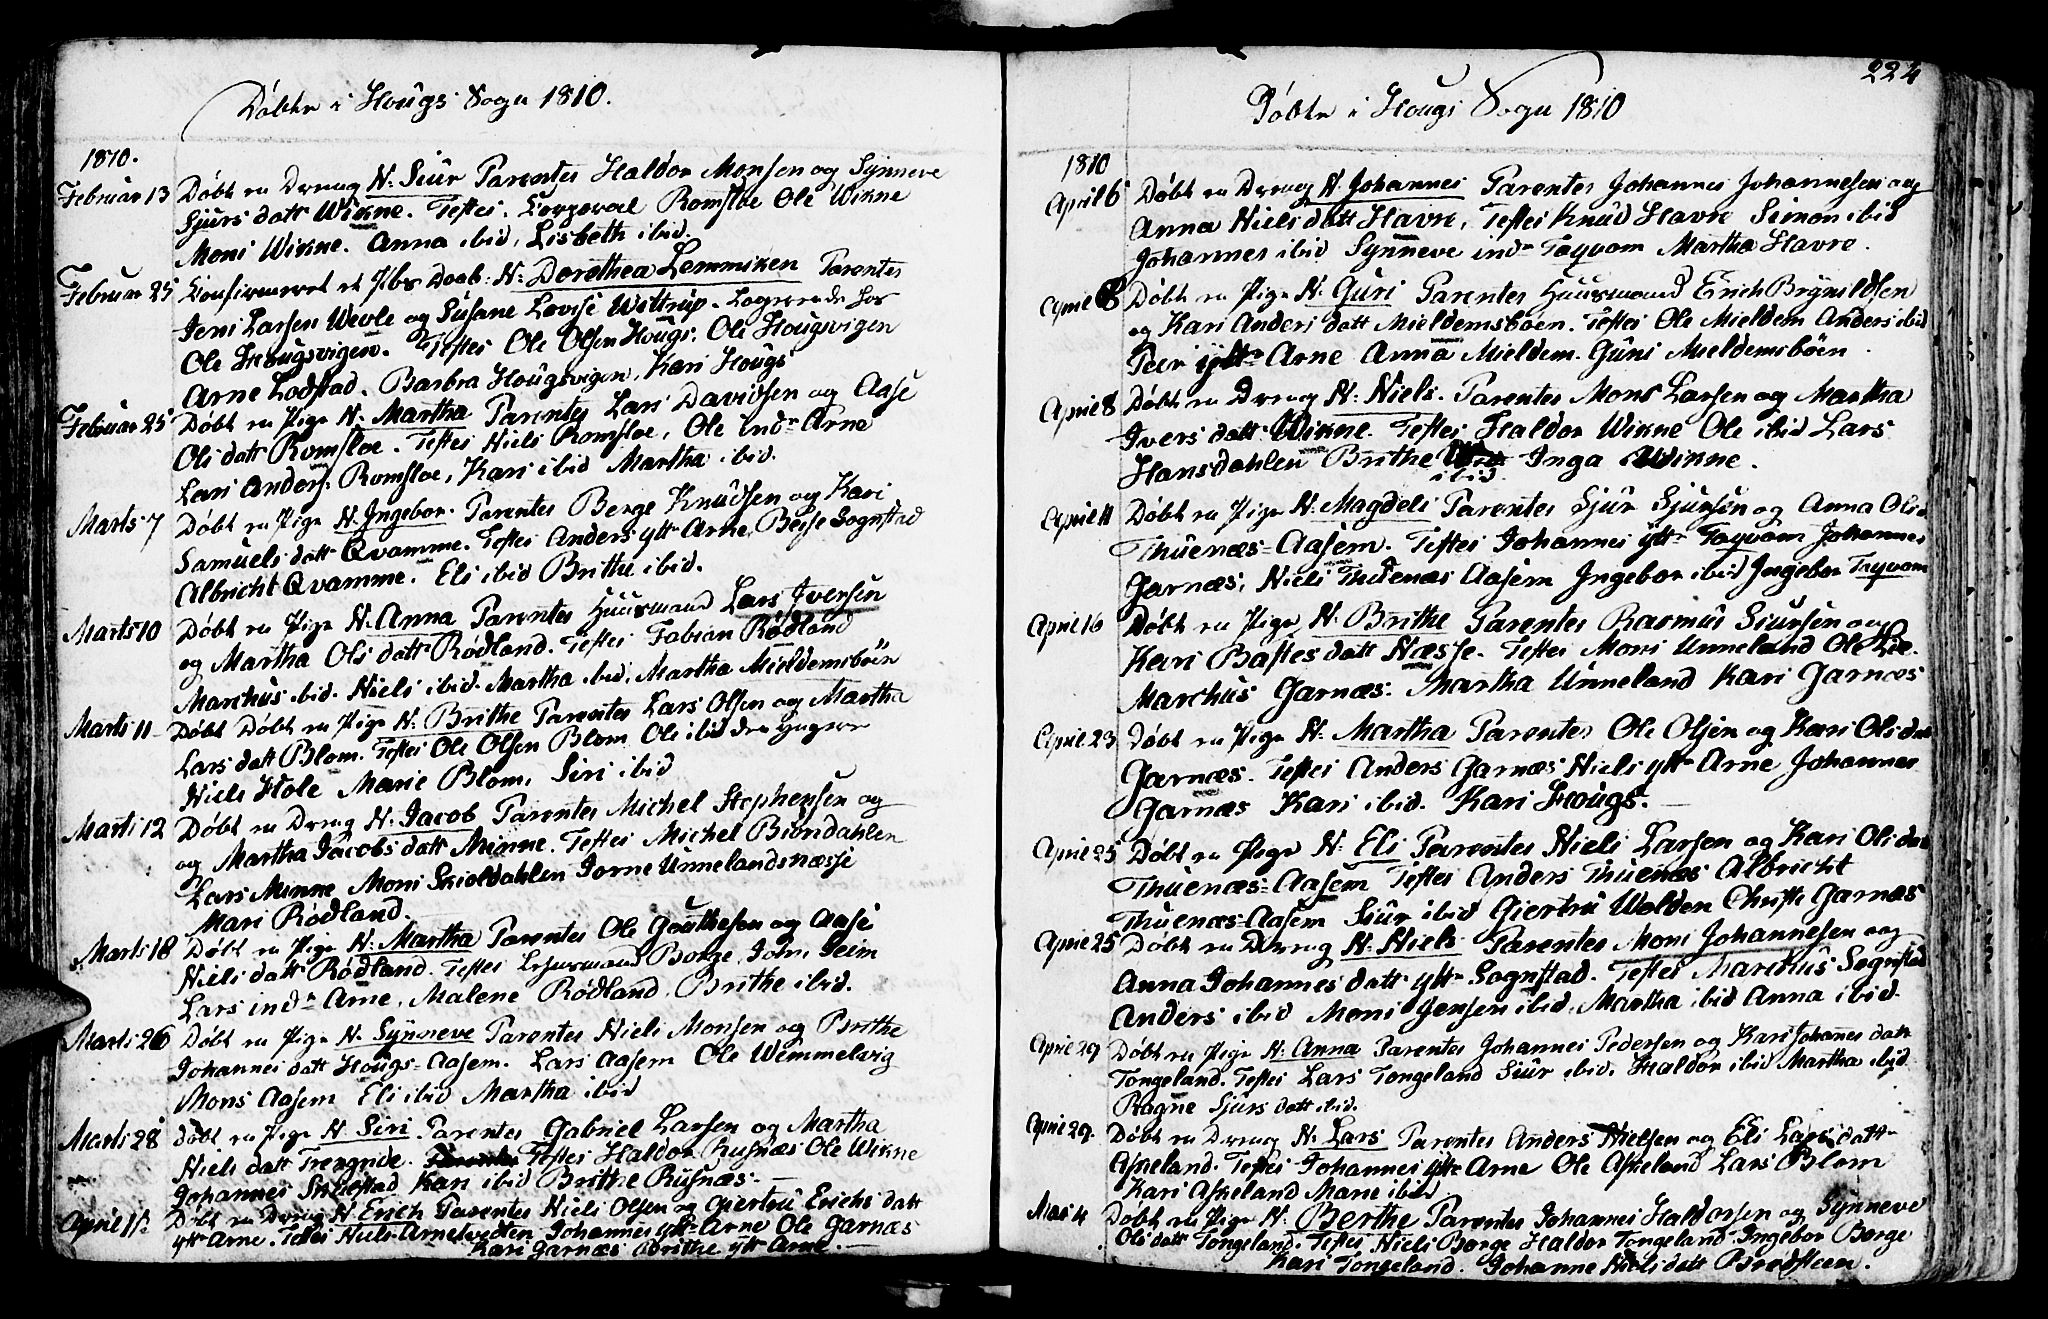 Døbte i Hougs Sogn 1810.
1810.
Februar 13 Døbt en Dreng N. Siur Parentes Haldor Monsen og Synneve
Sjurs datt Wikne. Testes. Corporal Romsloe Ole Wikne
Moni Wikne. Anna ibid, Lisbeth ibid.
Februar 25 Confirmeret et Pbr Daab. N: Dorothea Lemmiken Parentes
Jens Larsen Wevle og Susane Lovise Wittrup. Logerende hos
Ole Hougsvigen. Testes Ole Olsen Hougs. Ole Hougsvigen
Arne Lodstad. Barbra Hougsvigen, Kari Hougs
Februar 25 Døbt en Pige N. Martha Parentes Lars Davidsen og Aase
Ols datt Romsloe. Testes Niels Romsloe, Ole indr Arne
Lars Anders. Romsloe, Kari ibid Martha ibid.
Marts 7 Døbt en Pige N. Ingebor. Parentes Berge Knudsen og Kari
Samuels datt Qvamme. Testes Anders ytr Arne, Beise Sognstad
Albricht Qvamme. Eli ibid Brithe ibid.
Marts 10 Døbt en Pige N. Anna Parentes Huusmand Lars Iversen
og Martha Ols datt Rødland. Testes Fabian Rødland
Marchus ibid. Niels ibid. Martha ibid, Martha Mieldemsbøen
Marts 11 Døbt Døbt en Pige N. Brithe Parentes Lars Olsen og Martha
Lars datt Blom. Testes Ole Olsen Blom Ole ibid den yngere
Niels Hole Marie Blom, Siri ibid
Marts 12 Døbt en Dreng N. Jacob Parentes Michel Stephensen og
og Martha Jacobs datt Minne. Testes Michel Biørndahlen
Lars Minne Moni Skioldahlen Jorne Unnelandsnæsse
Mari Rødland.
Marts 18 Døbt en Pige N. Martha Parentes Ole Gouthesen og Aase
Niels datt Rødland. Testes Lehnsmand Borge, John Seim
Lars indr Arne, Malene Rødland. Brithe ibid.
Marts 26 Døbt en Pige N. Synneve Parentes Niels Monsen og Brithe
Johannes datt Hougs-Aasem. Lars Aasem Ole Wemmelvig
Mons Aasem Eli ibid Martha ibid
Marts 28 Døbt en Pige N. Siri Parentes Gabriel Larsen og Martha
Niels datt Trengride. Testes Haldor Rusnæs Ole Wikne
Johannes Skiefstad Kari ibid Brithe Rusnæs.
April 1 Døbt en Dreng N. Erich Parentes Niels Olsen og Giertru Erichs datt
ytr Arne. Testes Niels Arnetvedten Johannes ytr Arne Ole Garnæs
Kari Garnæs Brithe ytr Arne.
224
Døbte i Hougs Sogn 1810
1810
April 6 Døbt en Dreng N. Johannes Parentes Johannes Johannesen og
Anna Niels datt Havre, Testes Knud Havre Simon ibid
Johannes ibid Synneve indr Taqvam Martha Havre.
April 8 Døbt en Pige N. Guri Parentes Huusmand Erich Brynildsen
og Kari Anders datt Mieldemsbøen. Testes Ole Mieldem Anders ibid
Peer ytr Arne Anna Mieldem. Guni Mieldemsbøen
April 8 Døbt en Dreng N. Niels. Parentes Mons Larsen og Martha
Ivers datt Wikne. Testes Haldor Wikne Ole ibid Lars
Hansdahlen Brithe ibid. Inga Wikne.
April 11 Døbt en Pige N. Magdeli Parentes Sjur Sjursen og Anna Ols
Thuenæs-Aasem. Testes Johannes ytr Taqvam Johannes
Garnæs, Niels Thuenæs Aasem Ingebor ibid Ingebor Taqvam
April 16 Døbt en Pige N. Brithe Parentes Rasmus Siursen og
Kari Bastes datt Næsse. Testes Moni Unneland Ole Lie.
Marchus Garnæs. Martha Unneland Kari Garnæs
April 23 Døbt en Pige N. Martha Parentes Ole Olsen og Kari Ols datt
Garnæs. Testes Anders Garnæs Niels ytr Arne Johannes
Garnæs Kari ibid. Kari Hougs.
April 25 Døbt en Pige N. Eli Parentes Niels Larsen og Kari Ols datt
Thuenæs-Aasem Testes Anders Thuenæs Albricht
Thuenæs-Aasem Siur ibid Giertru Wolden Christi Garnæs
April 25 Døbt en Dreng N. Niels Parentes Moni Johannesen og
Anna Johannes datt ytr Sognstad. Testes Marchus Sognstad
Anders ibid Moni Jensen ibid, Martha ibid Anna ibid.
April 29 Døbt en Pige N. Anna Parentes Johannes Pedersen og Kari Johannes datt
Tongeland. Testes Lars Tongeland Siur ibid, Haldor ibid Martha ibid
Ragne Sjurs datt ibid.
April 29. Døbt en Dreng N. Lars Parentes Anders Nielsen og Eli Lars datt
Askeland. Testes Johannes ytr Arne Ole Askeland Lars Blom
Kari Askeland Marie ibid
Mai 4 Døbt en Pige N. Berthe Parentes Johannes Haldorsen og Synneve
Ols datt Tongeland. Testes Niels Borge Haldor Tongeland Ingebor Borge
Kari Tongeland. Johanne Niels datt Brødsteen.